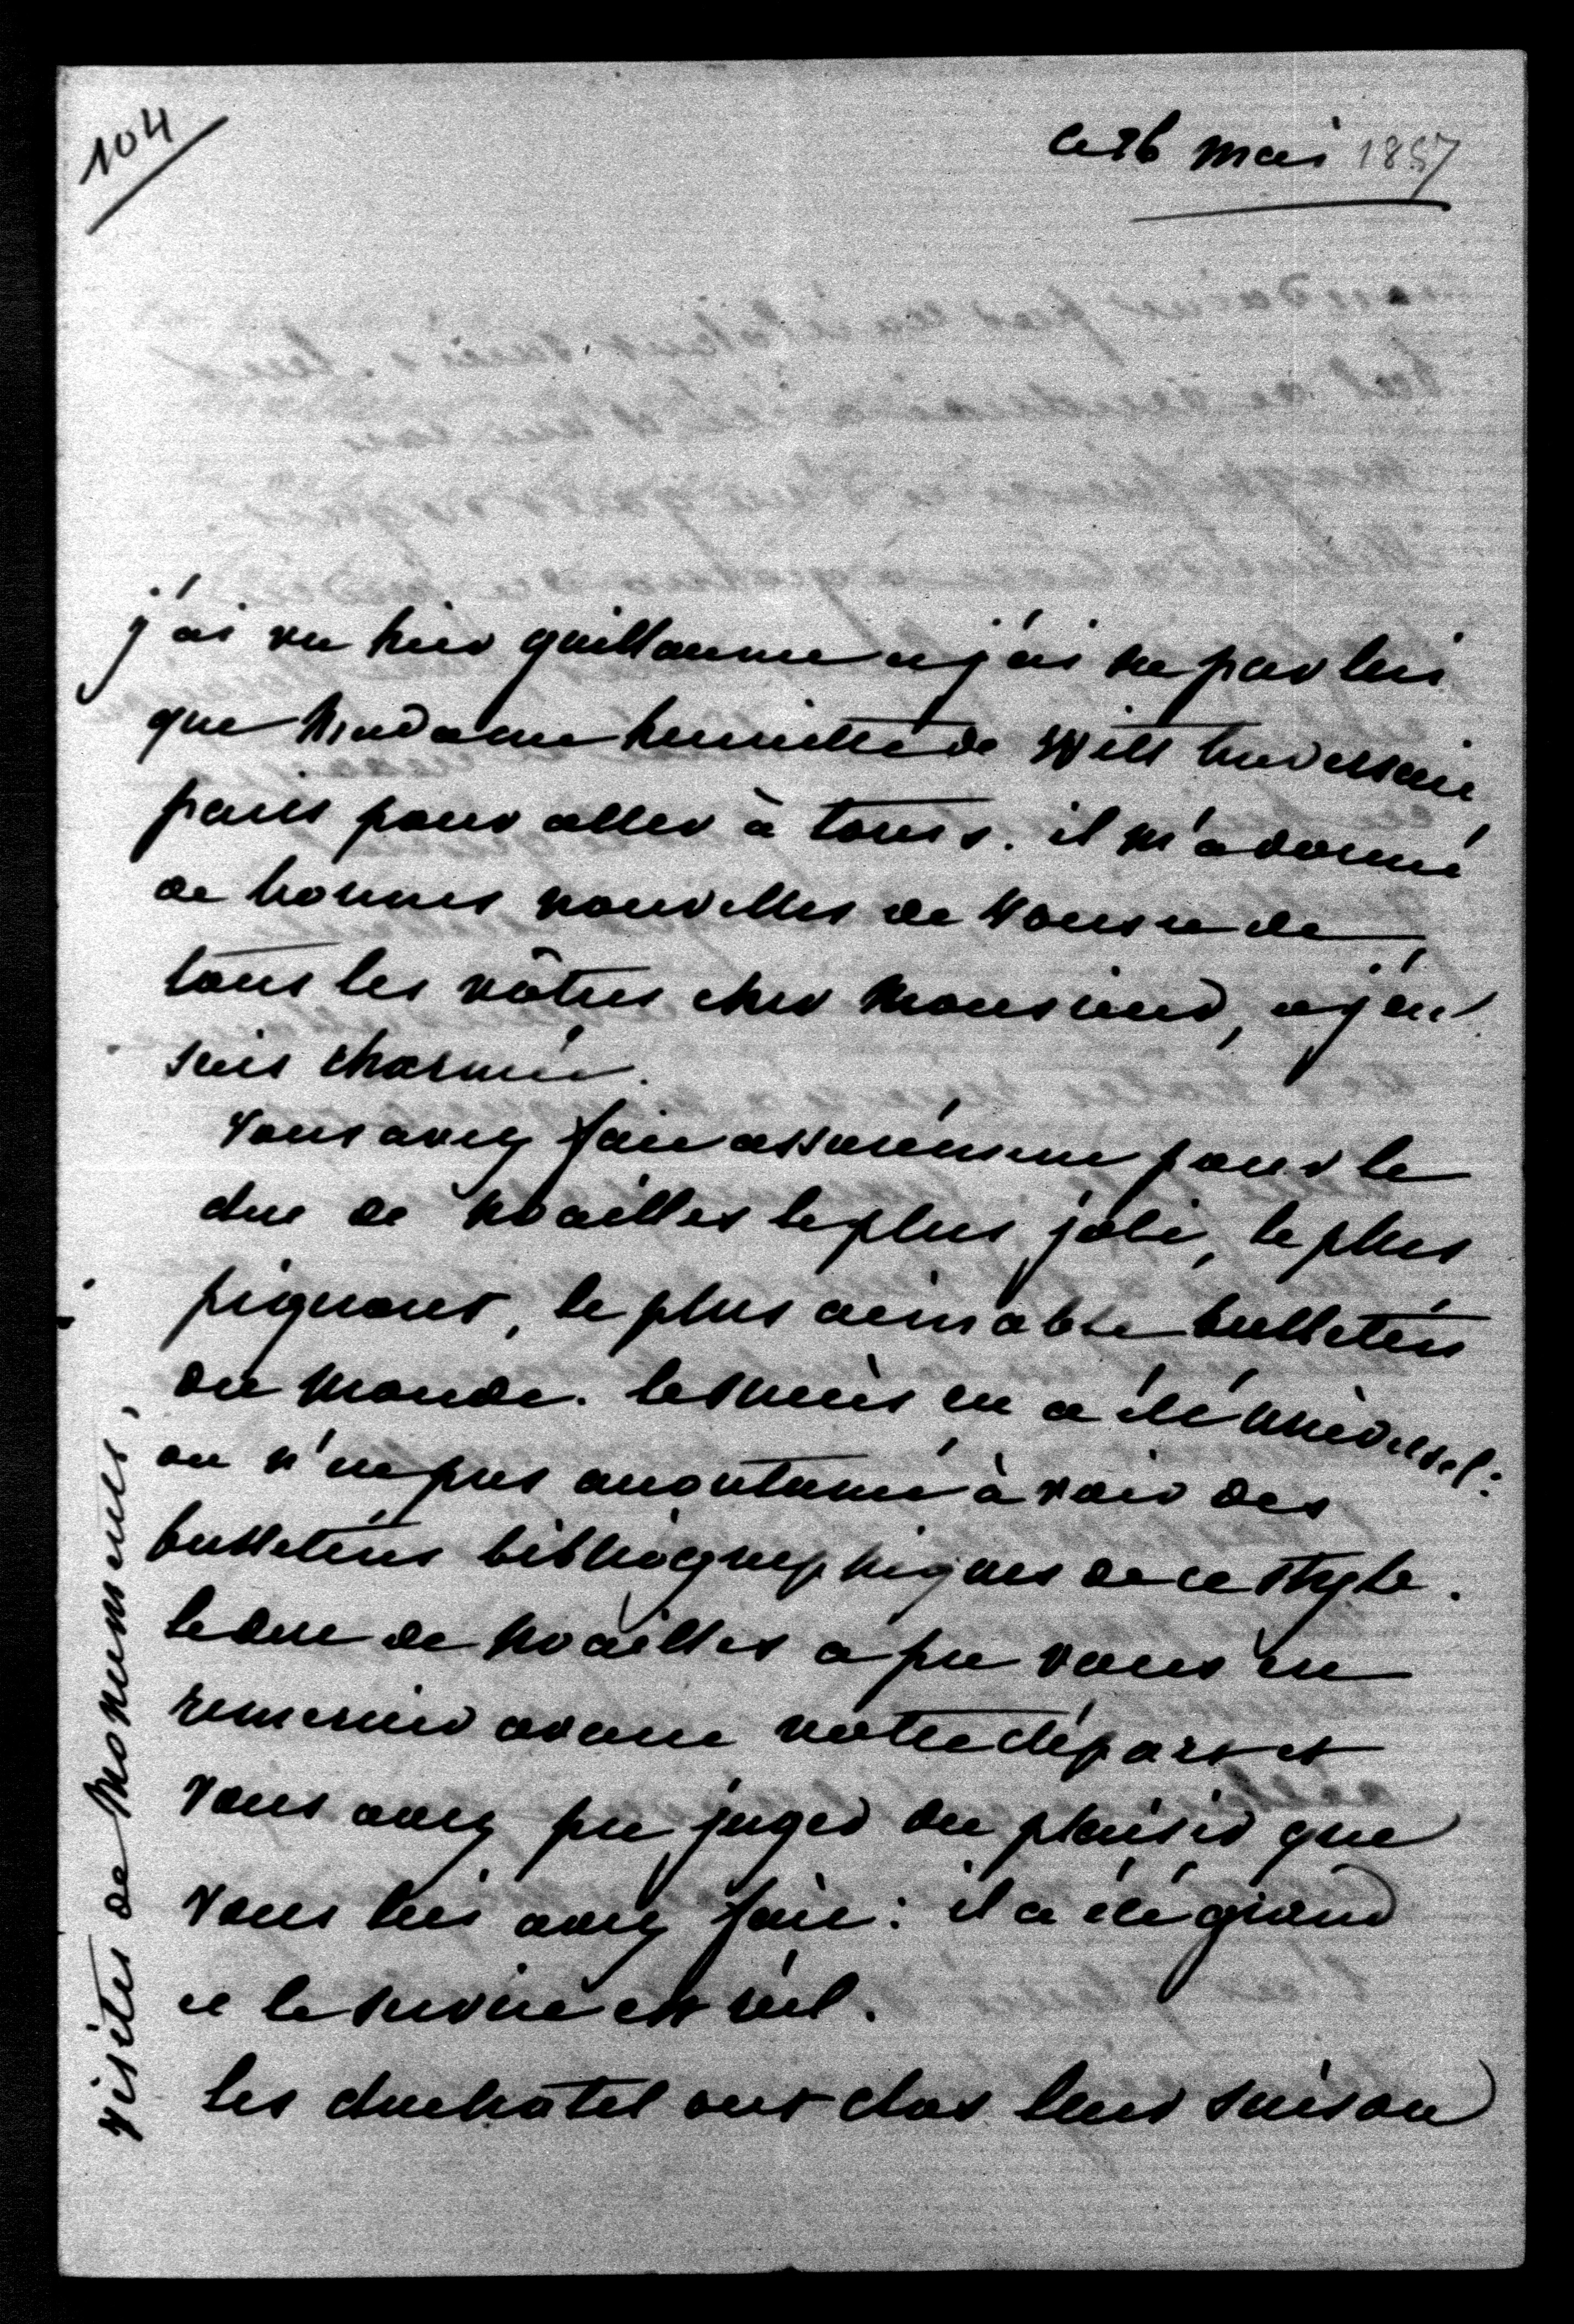 104
ce 26 mai 1857
j'ai vu hier guillaume et j'ai su par lui
que Madame henriette de Witt traversait
paris pour aller à tours. il m'a donné
de bonnes nouvelles de vous et de
tous les vôtres cher Monsieur, et j'en
suis charmée.
Vous avez fait assurément pour le
duc de Noailles le plus joli, le plus
piquant, le plus aimable bulletin
du monde. le succès en a été universel :
on n'est pas accoutumé à voir des
bulletins bibliographiques de ce style.
le duc de Noailles a pu vous en
remercier avant votre départ et
vous avez pu juger du plaisir que
vous lui avez fait : il a été grand
et le service est réel.
les duchâtel ont clos leur saison
visites de Monuments,